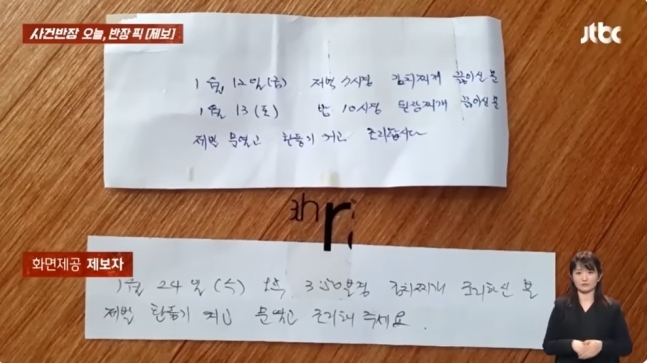 사건반장 오늘, 반장 픽 [제보]
jtbc
1월 12일(금) 저녁 7시경 김치찌개 끓이신 분
1월 13(토) 밤 10시경 된장찌개 끓이신 분
제발 문열고 환풍기 켜고 조리합시다
화면제공 제보자
1월 24일(수) 오후 3:50분경 김치찌개 조리하신 분
제발 환풍기 켜고 문열고 조리해 주세요.